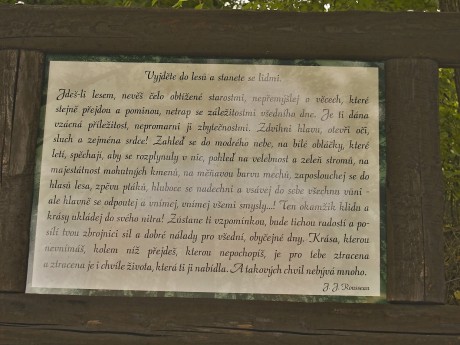 Vyjděte do lesů a stanete se lidmi.
Jdeš-li lesem, nevěš čelo obtížené starostmi, nepřemýšlej o věcech, které
stejně přejdou a pominou, netrap se záležitostmi všedního dne. Je ti dána
vzácná příležitost, nepromarni ji zbytečnostmi. Zdvihni hlavu, otevři oči,
sluch a zejména srdce! Zahleď se do modrého nebe, na bílé obláčky, které
letí, spěchají, aby se rozplynuly v nic, pohleď na velebnost a zeleň stromů, na
majestátnost mohutných kmenů, na měňavou barvu mechů, zaposlouchej se do
hlasů lesa, zpěvu ptáků, hluboce se nadechni a vsávej do sebe všechnu vůni -
ale hlavně se odpoutej a vnímej, vnímej všemi smysly...! Ten okamžik klidu a
krásy ukládej do svého nitra! Zůstane ti vzpomínkou, bude tichou radostí a po-
sílí tvou zbrojnici sil a dobré nálady pro všední, obyčejné dny. Krása, kterou
nevnímáš, kolem níž přejdeš, kterou nepochopíš, je pro tebe ztracena
a ztracena je i chvíle života, která ti ji nabídla. A takových chvil nebývá mnoho.
J. J. Rousseau